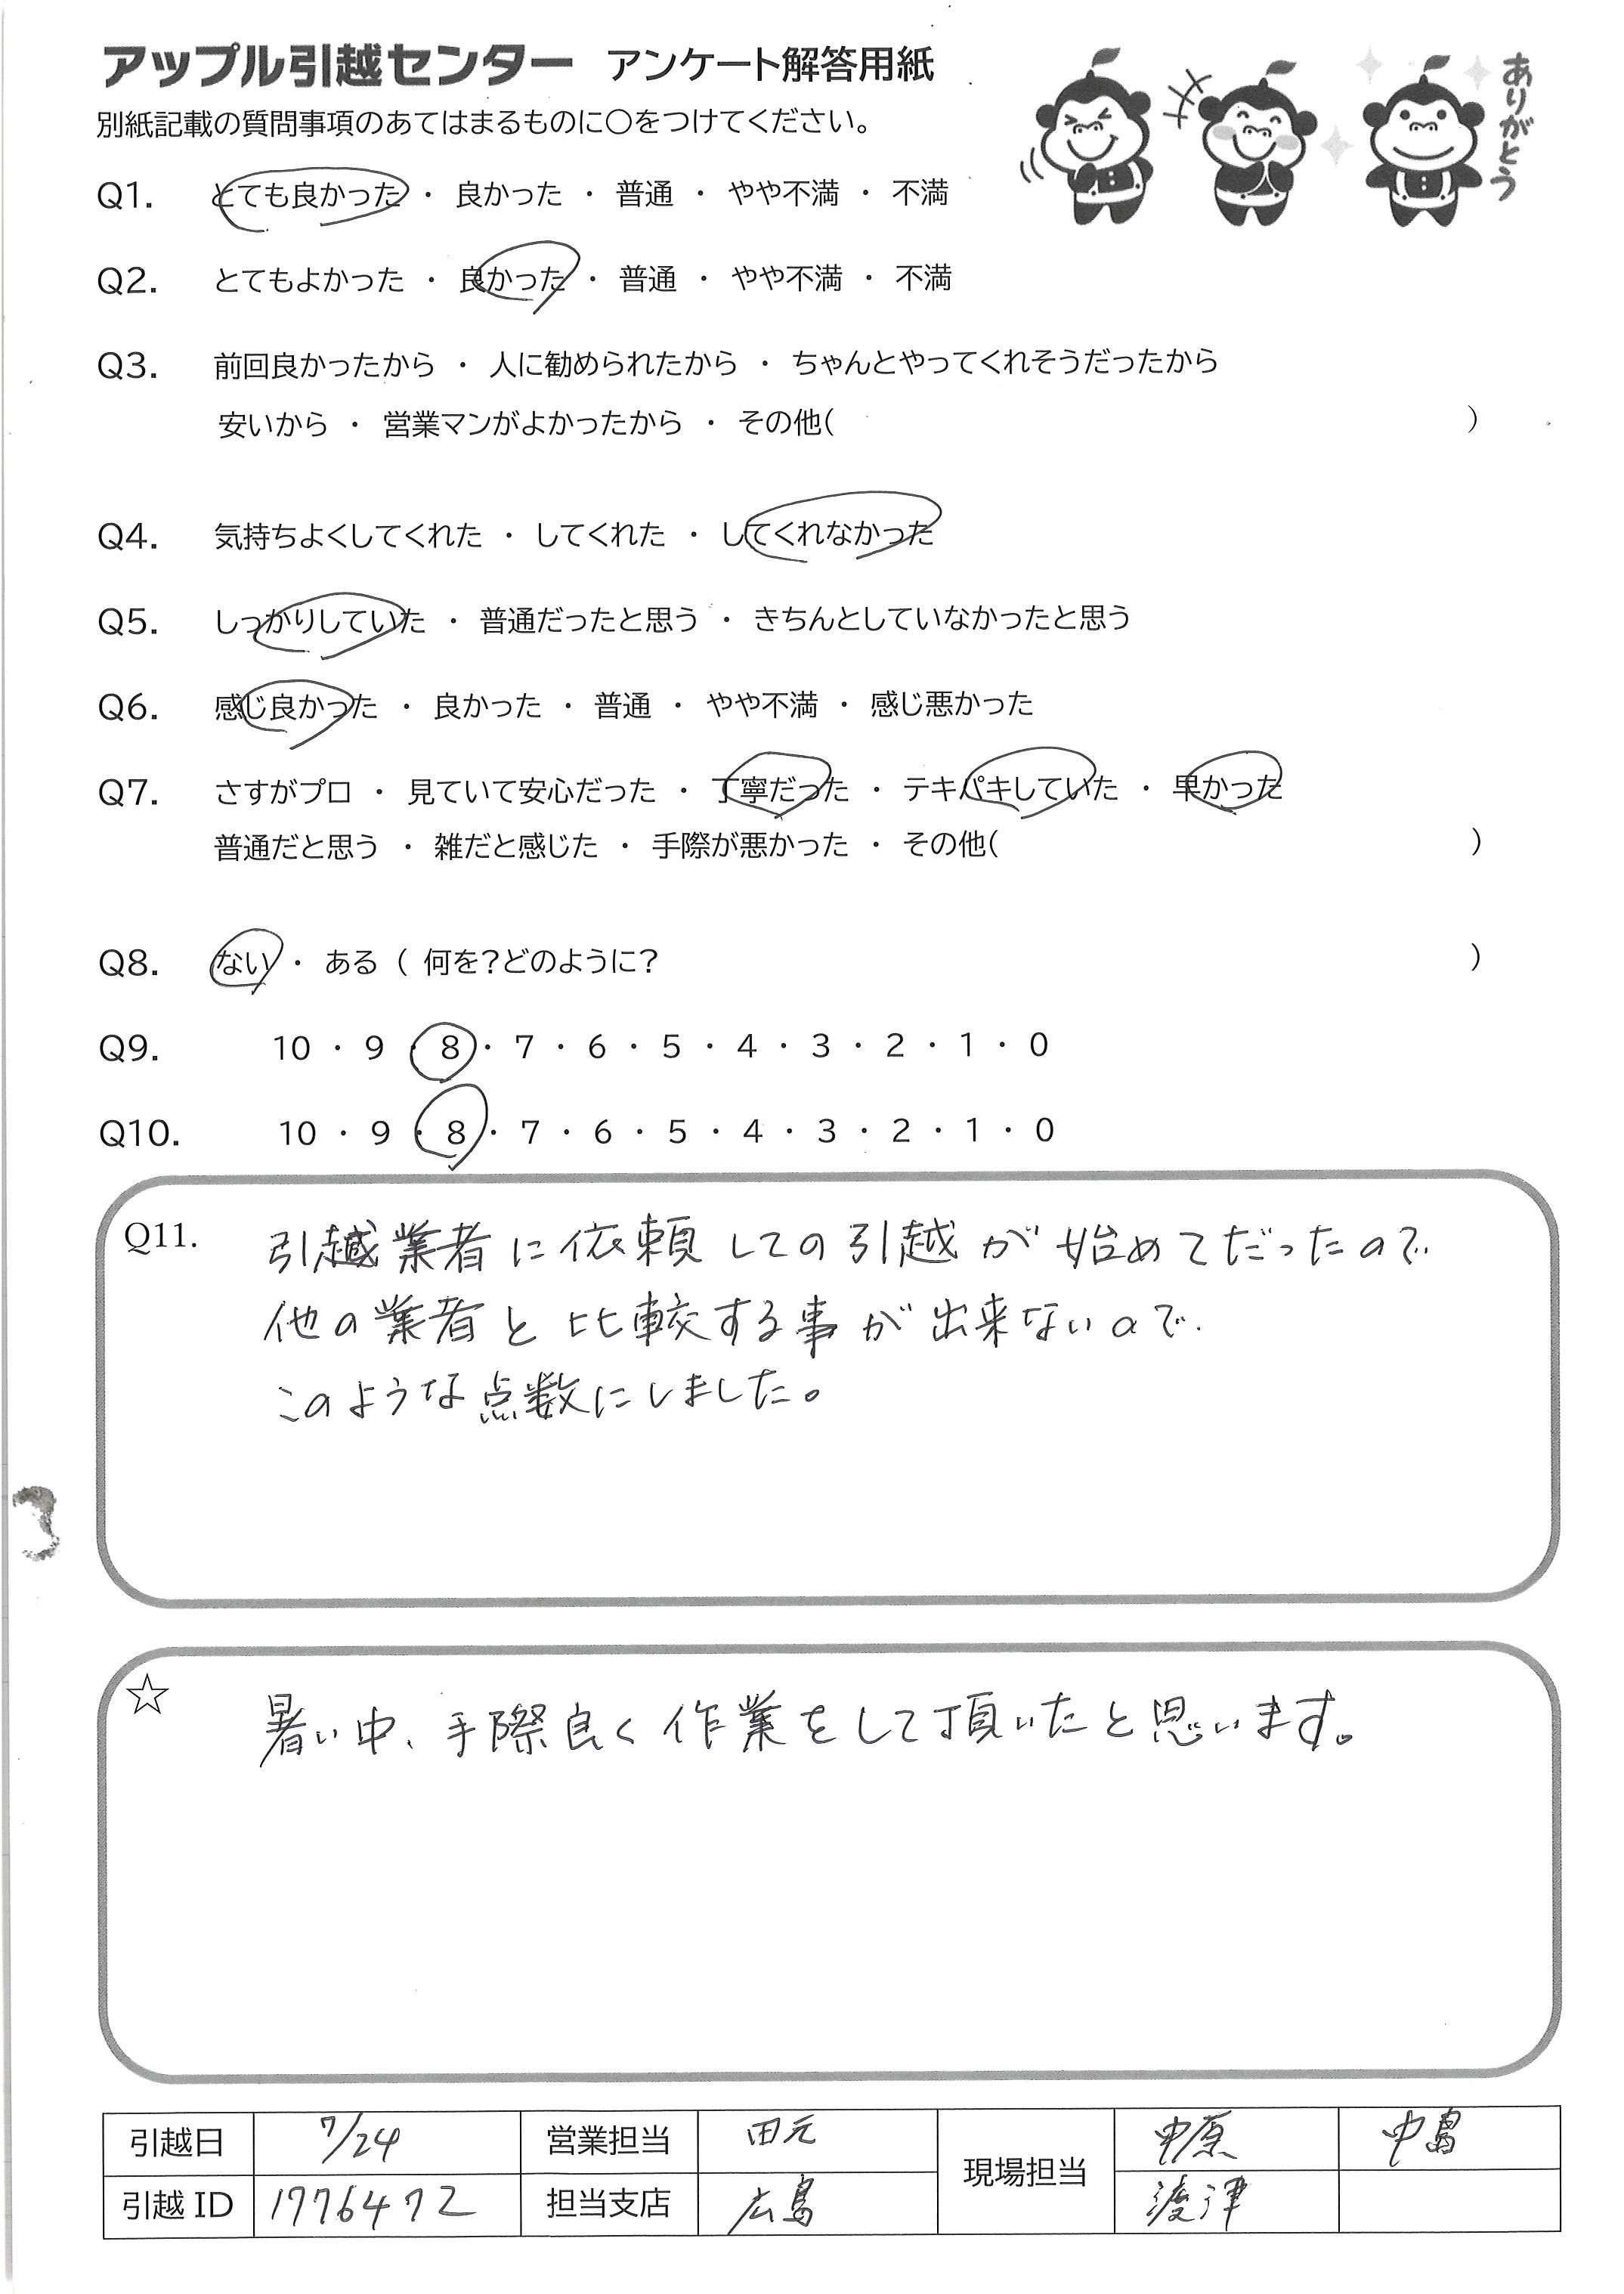 アップル引越センター アンケート解答用紙
ありがとう
別紙記載の質問事項のあてはまるものに○をつけてください。
Q1. とても良かった ・ 良かった ・ 普通 ・ やや不満 ・ 不満
Q2. とてもよかった ・ 良かった ・ 普通 ・ やや不満 ・ 不満
Q3. 前回良かったから ・ 人に勧められたから ・ ちゃんとやってくれそうだったから
安いから ・ 営業マンがよかったから ・ その他( )
Q4. 気持ちよくしてくれた ・ してくれた ・ してくれなかった
Q5. しっかりしていた ・ 普通だったと思う ・ きちんとしていなかったと思う
Q6. 感じ良かった ・ 良かった ・ 普通 ・ やや不満 ・ 感じ悪かった
Q7. さすがプロ ・ 見ていて安心だった ・ 丁寧だった ・ テキパキしていた ・ 早かった
普通だと思う ・ 雑だと感じた ・ 手際が悪かった ・ その他( )
Q8. ない ・ ある ( 何を?どのように? )
Q9. 10 ・ 9 ・ 8 ・ 7 ・ 6 ・ 5 ・ 4 ・ 3 ・ 2 ・ 1 ・ 0
Q10. 10 ・ 9 ・ 8 ・ 7 ・ 6 ・ 5 ・ 4 ・ 3 ・ 2 ・ 1 ・ 0
Q11. 引越業者に依頼しての引越が始めてだったので
他の業者と比較する事が出来ないので.
このような点数にしました。
☆ 暑い中、手際良く作業をして頂いたと思います。
引越日 7/24 営業担当 田元 現場担当 中原 中畠
引越ID 1776472 担当支店 広島 渡津